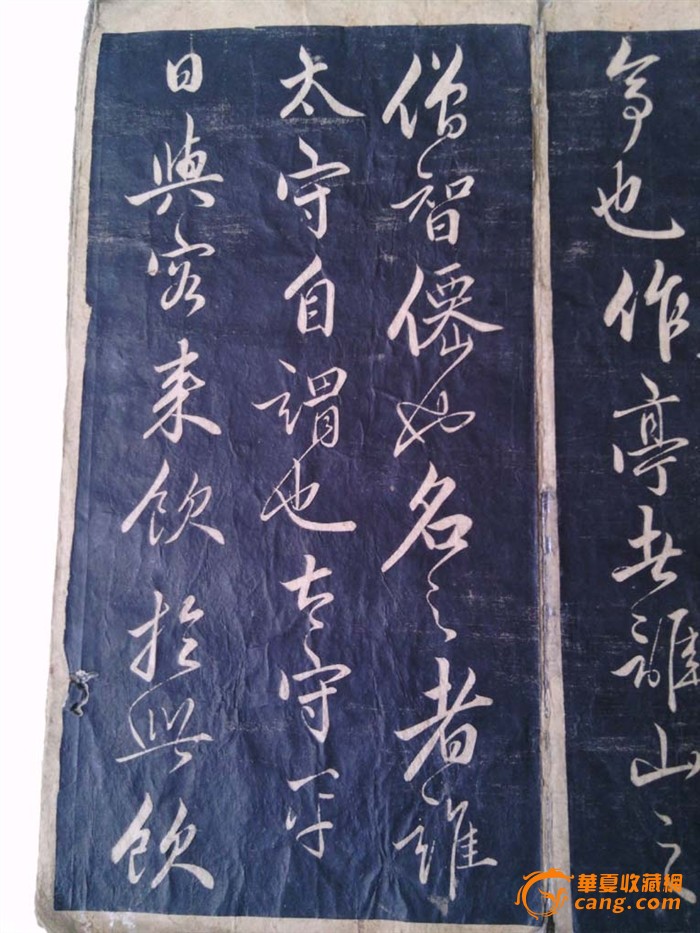 亭也作亭者誰山之
僧智僊也名之者誰
太守自謂也太守平
日與客来飲於此飲
華夏收藏網
cang.com